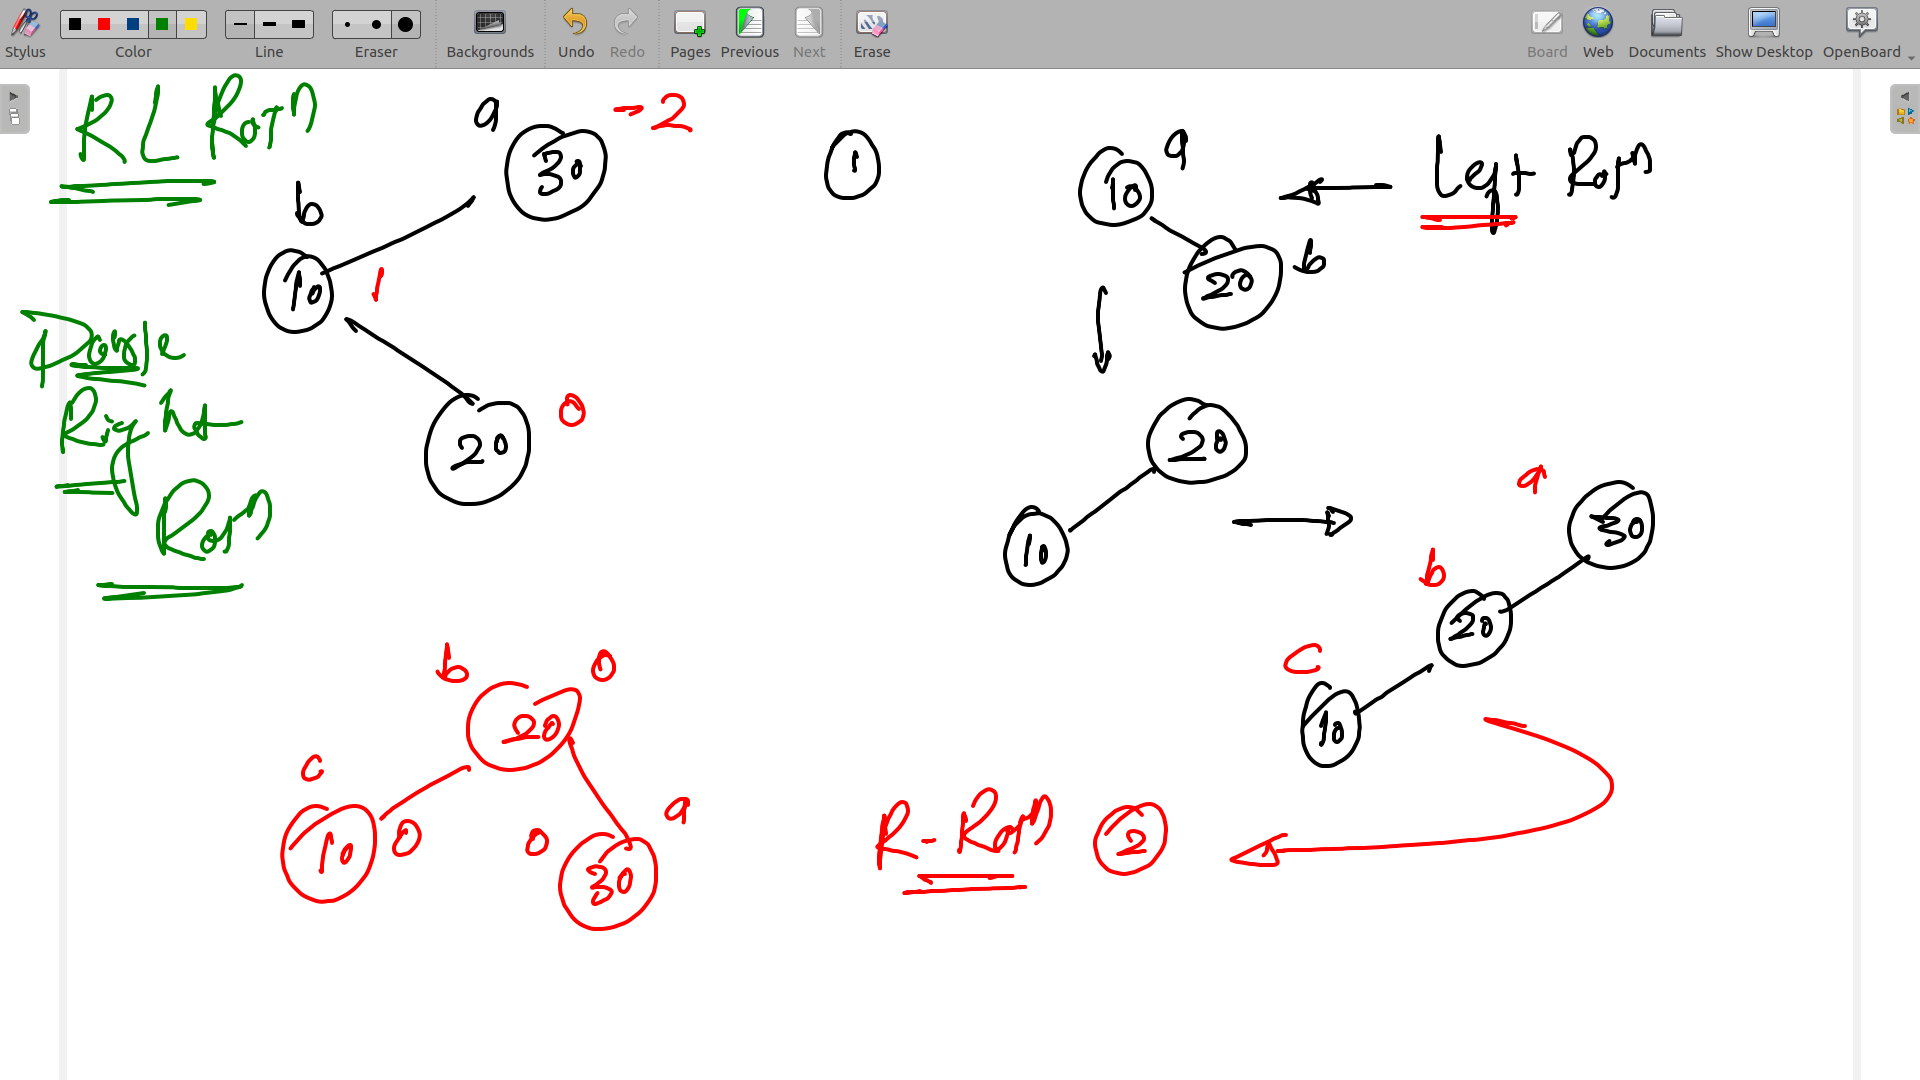 Stylus
Color
Line
Eraser
Backgrounds
Undo
Redo
Pages
Previous
Next
Erase
Board
Web
Documents
Show Desktop
OpenBoard
RL Rotn
a
30
-2
b
10
1
20
0
Double
Right
Rotn
1
10
a
Left Rotn
20
b
20
10
a
30
b
20
c
10
b
0
20
c
10
0
a
0
30
R-Rotn
2